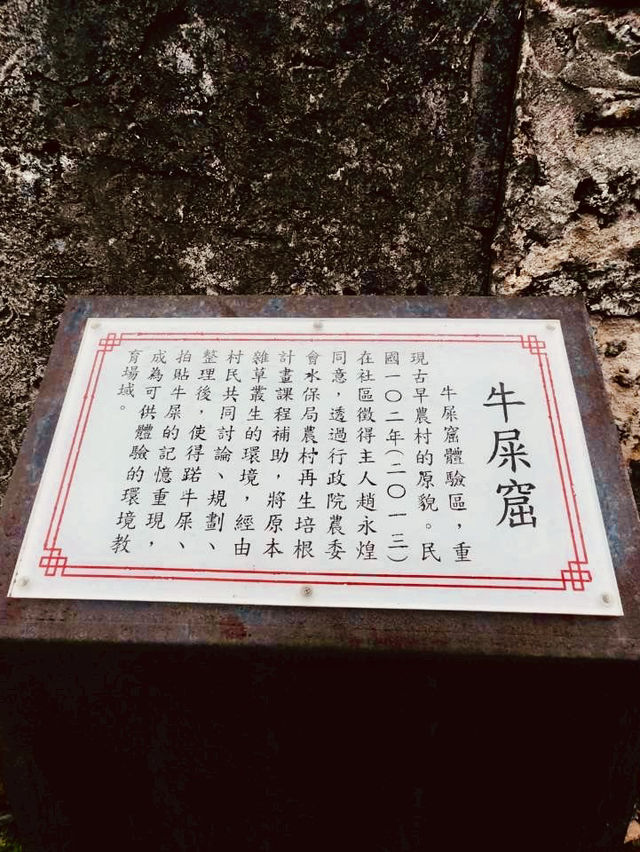 牛屎窟
牛屎窟體驗區，重
現古早農村的原貌。民
國一〇二年(二〇一三)
在社區徵得主人趙永煌
同意，透過行政院農委
會水保局農村再生培根
計畫課程補助，將原本
雜草叢生的環境，經由
村民共同討論、規劃、
整理後，使得踣牛屎、
拍貼牛屎的記憶重現，
成為可供體驗的環境教
育場域。